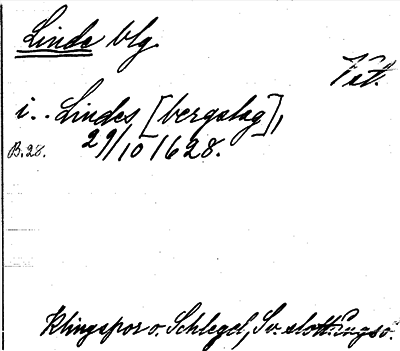 Linde blg
Väst.
i.. Lindes [bergslag],
B.28. 29/10 1628.
Klingspor o. Schlegel, Sv. slott: Engsö.